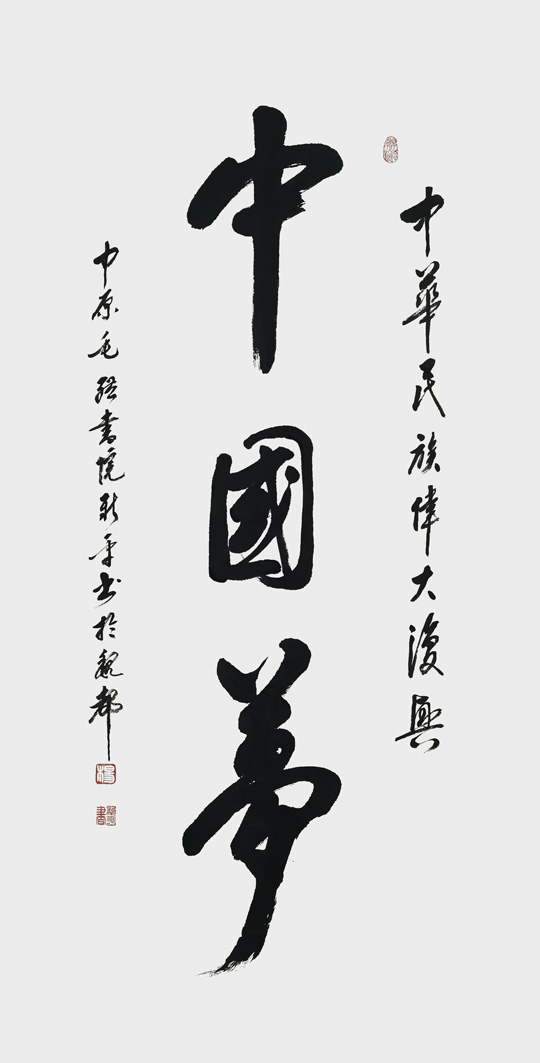 中華民族偉大復興
中國夢
中原毛體書院新平書於魏都